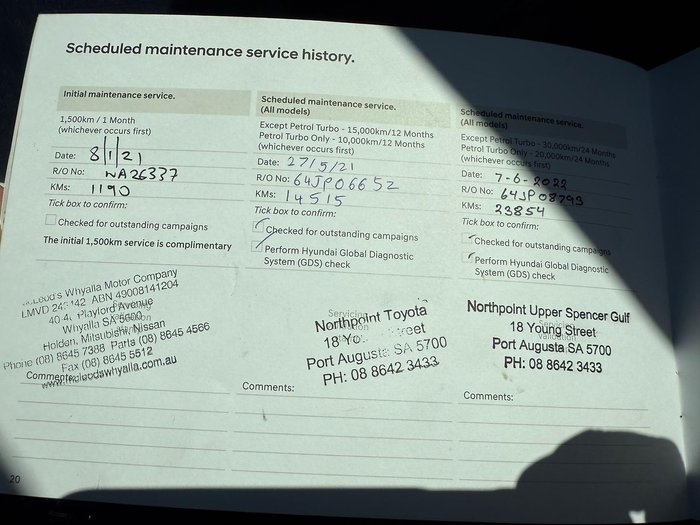 Scheduled maintenance service history.
Initial maintenance service.
1,500km / 1 Month
(whichever occurs first)
Date: 8/1/21
R/O No: WA26337
KMs: 1190
Tick box to confirm:
Checked for outstanding campaigns
The initial 1,500km service is complimentary
McLeod's Whyalla Motor Company
LMVD ABN 49008141204
Playford Avenue
Whyalla SA 5600
Holden, Mitsubishi, Nissan
Phone (08) 8645 7388 Parts (08) 8645 4566
Fax (08) 8645 5512
www.mcleodswhyalla.com.au
Comments:
Scheduled maintenance service.
(All models)
Except Petrol Turbo - 15,000km/12 Months
Petrol Turbo Only - 10,000km/12 Months
(whichever occurs first)
Date: 27/5/21
R/O No: 64JP06652
KMs: 14515
Tick box to confirm:
Checked for outstanding campaigns
Perform Hyundai Global Diagnostic
System (GDS) check
Servicing
Northpoint Toyota
18 Yo reet
Port Augusta SA 5700
PH: 08 8642 3433
Comments:
Scheduled maintenance service.
(All models)
Except Petrol Turbo - 30,000km/24 Months
Petrol Turbo Only - 20,000km/24 Months
(whichever occurs first)
Date: 7-6-2022
R/O No: 64JP08793
KMs: 23854
Tick box to confirm:
Checked for outstanding campaigns
Perform Hyundai Global Diagnostic
System (GDS) check
Northpoint Upper Spencer Gulf
18 Young Street
Port Augusta SA 5700
PH: 08 8642 3433
Comments:
20